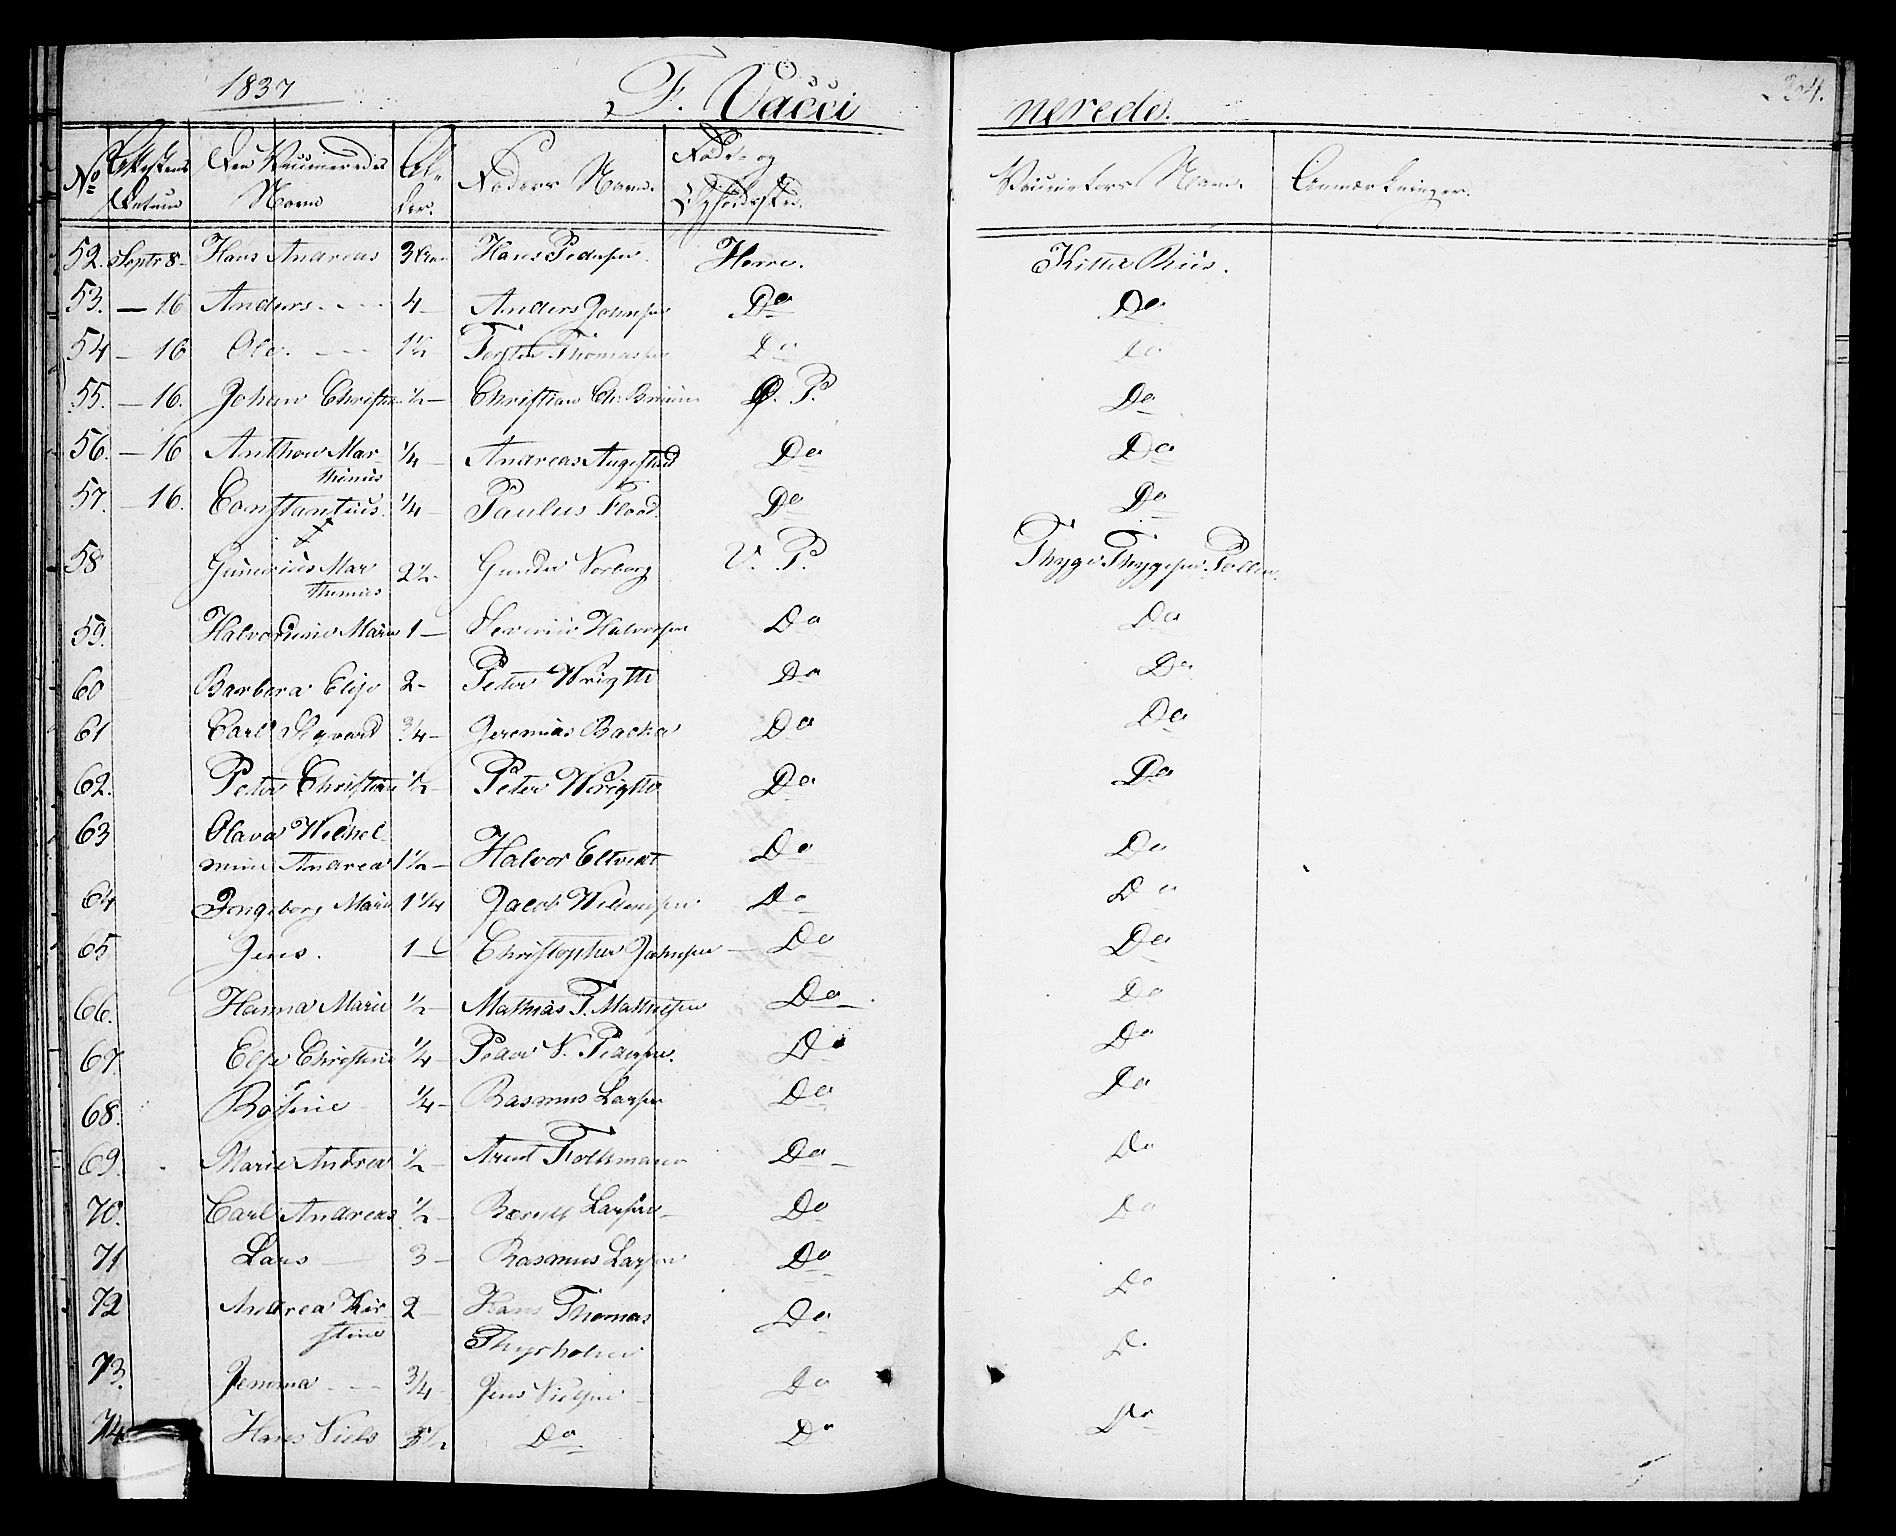 1837 F. Vacci nerede. 304.
No Attestens Datum Den Vaccineredes Navn Al- der. Faders Navn. Føde- og Opholdssted. Vaccinators Navn. Anmærkninger.
52. Septr 8 Hans Andreas 3 Hans Pedersen Herre. Kittel Riis.
53. — 16 Anders 4 — Anders Johnsen Do Do
54 — 16 Ole. 1½ Torsten Thomassen Do Do
55. — 16. Johan Christian ½ — Christian Ch. Bruun P. Do
56. — 16 Anthon Mar- thinius ¼ — Andreas Augestad Do Do
57. — 16. Constantius. ¼ — Paulus Flood. Do Do
58 Gunerius Mar thinius 2½ Gunder Norborg V. P. Thyge Thygesen
59. Halvordine Marie 1 — Severin Halvorsen Do Do
60 Barbera Elise 2 - Peter Wrigtt Do Do
61 Carl Sigvard ¾ — Jeremias Backa Do Do
62. Peter Christian ½ — Peter Wrigtt Do Do
63 Olava Wilhel- mine Andrea 1½ — Halvor Eltvedt Do Do
64 Ingeborg Marie 1¼ Jacob Willumsen Do Do
65 Jens. 1 — Christopher Johnsen — Do Do
66. Hanna Marie ½ — Mathias T. Mathisen Do Do
67. Else Christine ¼ — Peder N. Pedersen. Do Do
68. Rosine ¼ — Rasmus Larsen Do Do
69. Marie Andrea ½ — Arent Folkmann Do Do
70. Carl Andreas ½ — Berult Larsen Do Do
71 Lars 3 — Rasmus Larsen Do Do
72 Andrea Kir- stine 2 — Hans Thomas Thyrholm Do D.
73. Jemma ¾ — Jens Nielsen Do
74 Hans Niels Do Do Do